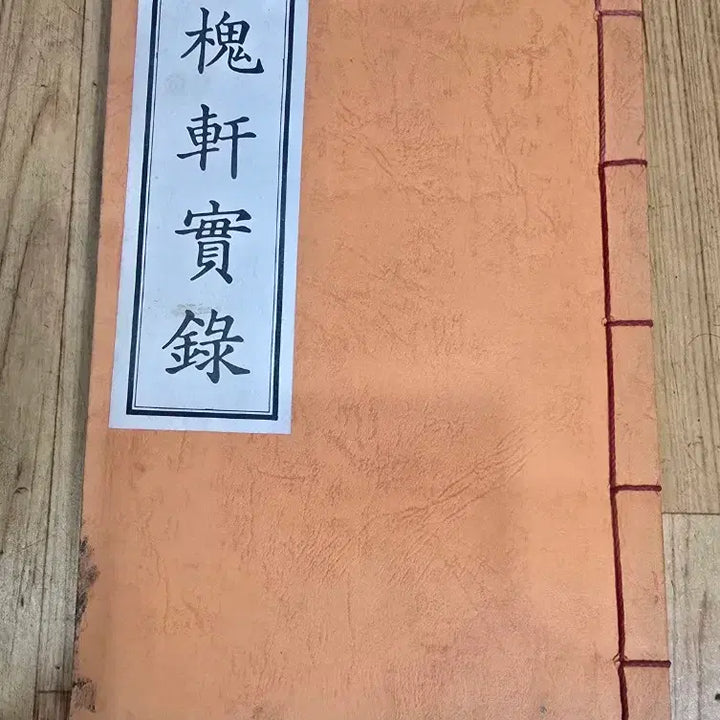 槐軒實錄